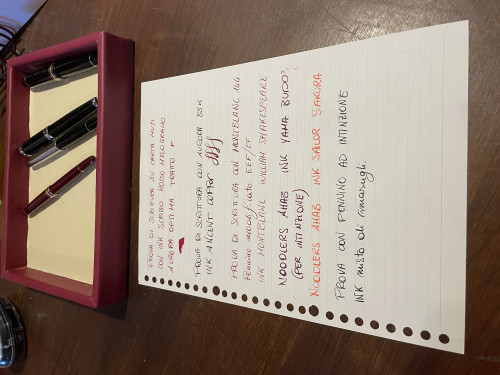 PROVA DI SCRITTURA SU CARTA MUJI
CON INK SCRIBO ROSSO MELOGRANO
AURORA OPTIMA TRATTO F
PROVA DI SCRITTURA CON AURORA 88 K
INK ANCIENT COPPER
PROVA DI SCRITTURA CON MONTBLANC 146
Pennino EEF/EF
INK MONTBLANC WILLIAM SHAKESPEARE
NOODLERS AHAB INK YAMA BUDO
(PER INTINZIONE)
NOODLERS AHAB INK SAILOR SAKURA
PROVA CON PENNINO AD INTINZIONE
INK misto di rimasugli.